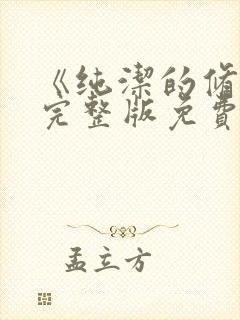 《纯潔的脩
完整版免費
孟立方